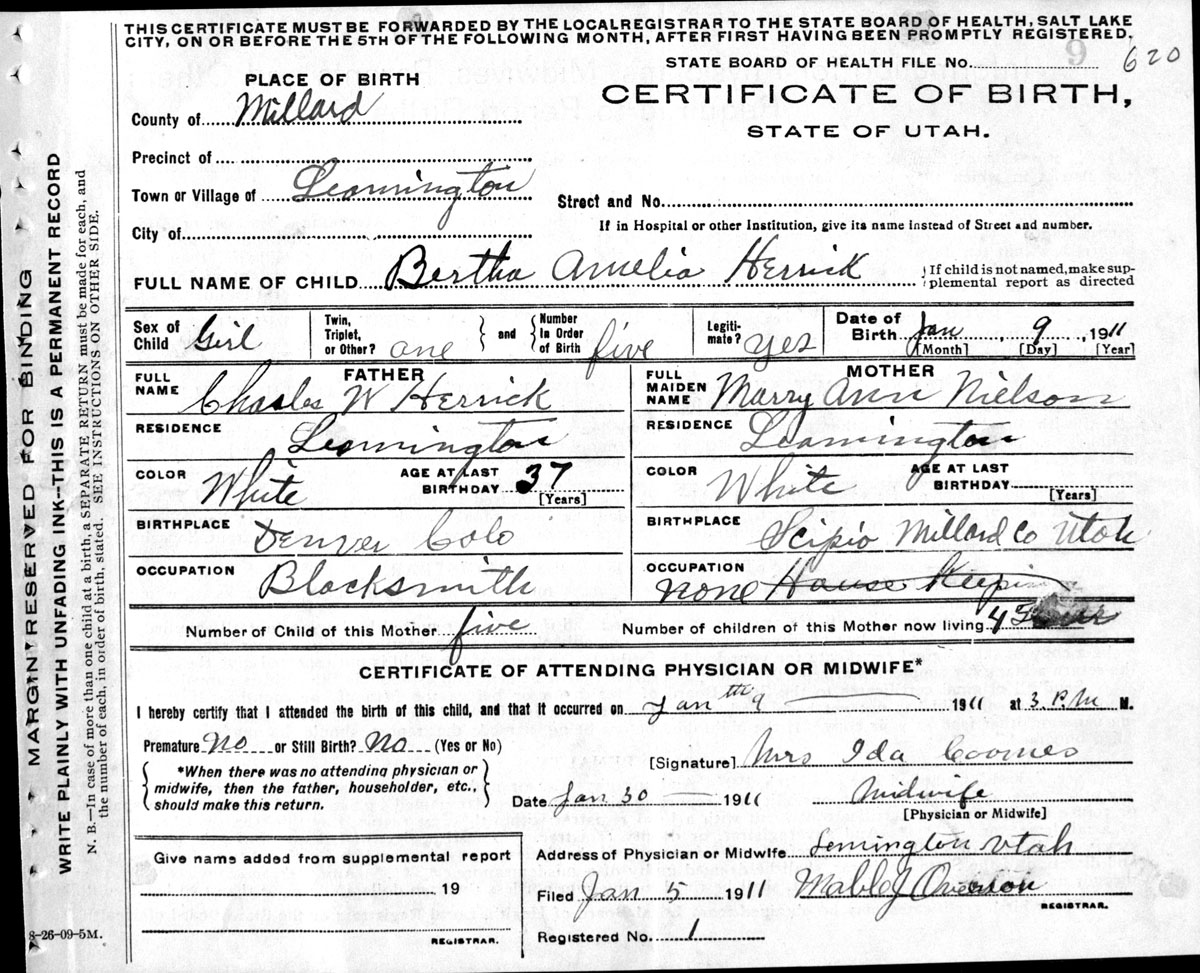 THIS CERTIFICATE MUST BE FORWARDED BY THE LOCAL REGISTRAR TO THE STATE BOARD OF HEALTH, SALT LAKE
CITY, ON OR BEFORE THE 5TH OF THE FOLLOWING MONTH, AFTER FIRST HAVING BEEN PROMPTLY REGISTERED.
STATE BOARD OF HEALTH FILE No. 9 620
PLACE OF BIRTH
CERTIFICATE OF BIRTH,
County of Millard
STATE OF UTAH.
Precinct of
Town or Village of Leamington
Street and No.
City of
If in Hospital or other Institution, give its name instead of Street and number.
FULL NAME OF CHILD Bertha Amelia Herrick
{If child is not named, make sup-
plemental report as directed
Sex of Child Girl
Twin, Triplet, or Other? one
and
Number In Order of Birth five
Legiti-mate? yes
Date of Birth Jan 9, 1911
[Month] [Day] [Year]
FATHER
FULL NAME Charles W Herrick
MOTHER
FULL MAIDEN NAME Marry Ann Nielson
RESIDENCE Leamington
RESIDENCE Leamington
COLOR White AGE AT LAST BIRTHDAY 37 [Years]
COLOR White AGE AT LAST BIRTHDAY [Years]
BIRTHPLACE Denver Colo
BIRTHPLACE Scipio Millard Co Utah
OCCUPATION Blacksmith
OCCUPATION none House Keepin
Number of Child of this Mother five
Number of children of this Mother now living 4 Four
CERTIFICATE OF ATTENDING PHYSICIAN OR MIDWIFE*
I hereby certify that I attended the birth of this child, and that it occurred on Jan 9th 1911 at 3 P.M M.
Premature No or Still Birth? No (Yes or No)
{*When there was no attending physician or
midwife, then the father, householder, etc.,
should make this return.}
[Signature] Mrs Ida Coomes
Date Jan 30 1911 Midwife
[Physician or Midwife]
Give name added from supplemental report
19
REGISTRAR.
Address of Physician or Midwife Lemington Utah
Filed Jan 5 1911 Mable J Overson
REGISTRAR.
Registered No. 1
8-26-09-5M.
MARGIN RESERVED FOR BINDING
WRITE PLAINLY WITH UNFADING INK--THIS IS A PERMANENT RECORD
N. B.—In case of more than one child at a birth, a SEPARATE RETURN must be made for each, and
the number of each, in order of birth, stated. SEE INSTRUCTIONS ON OTHER SIDE.